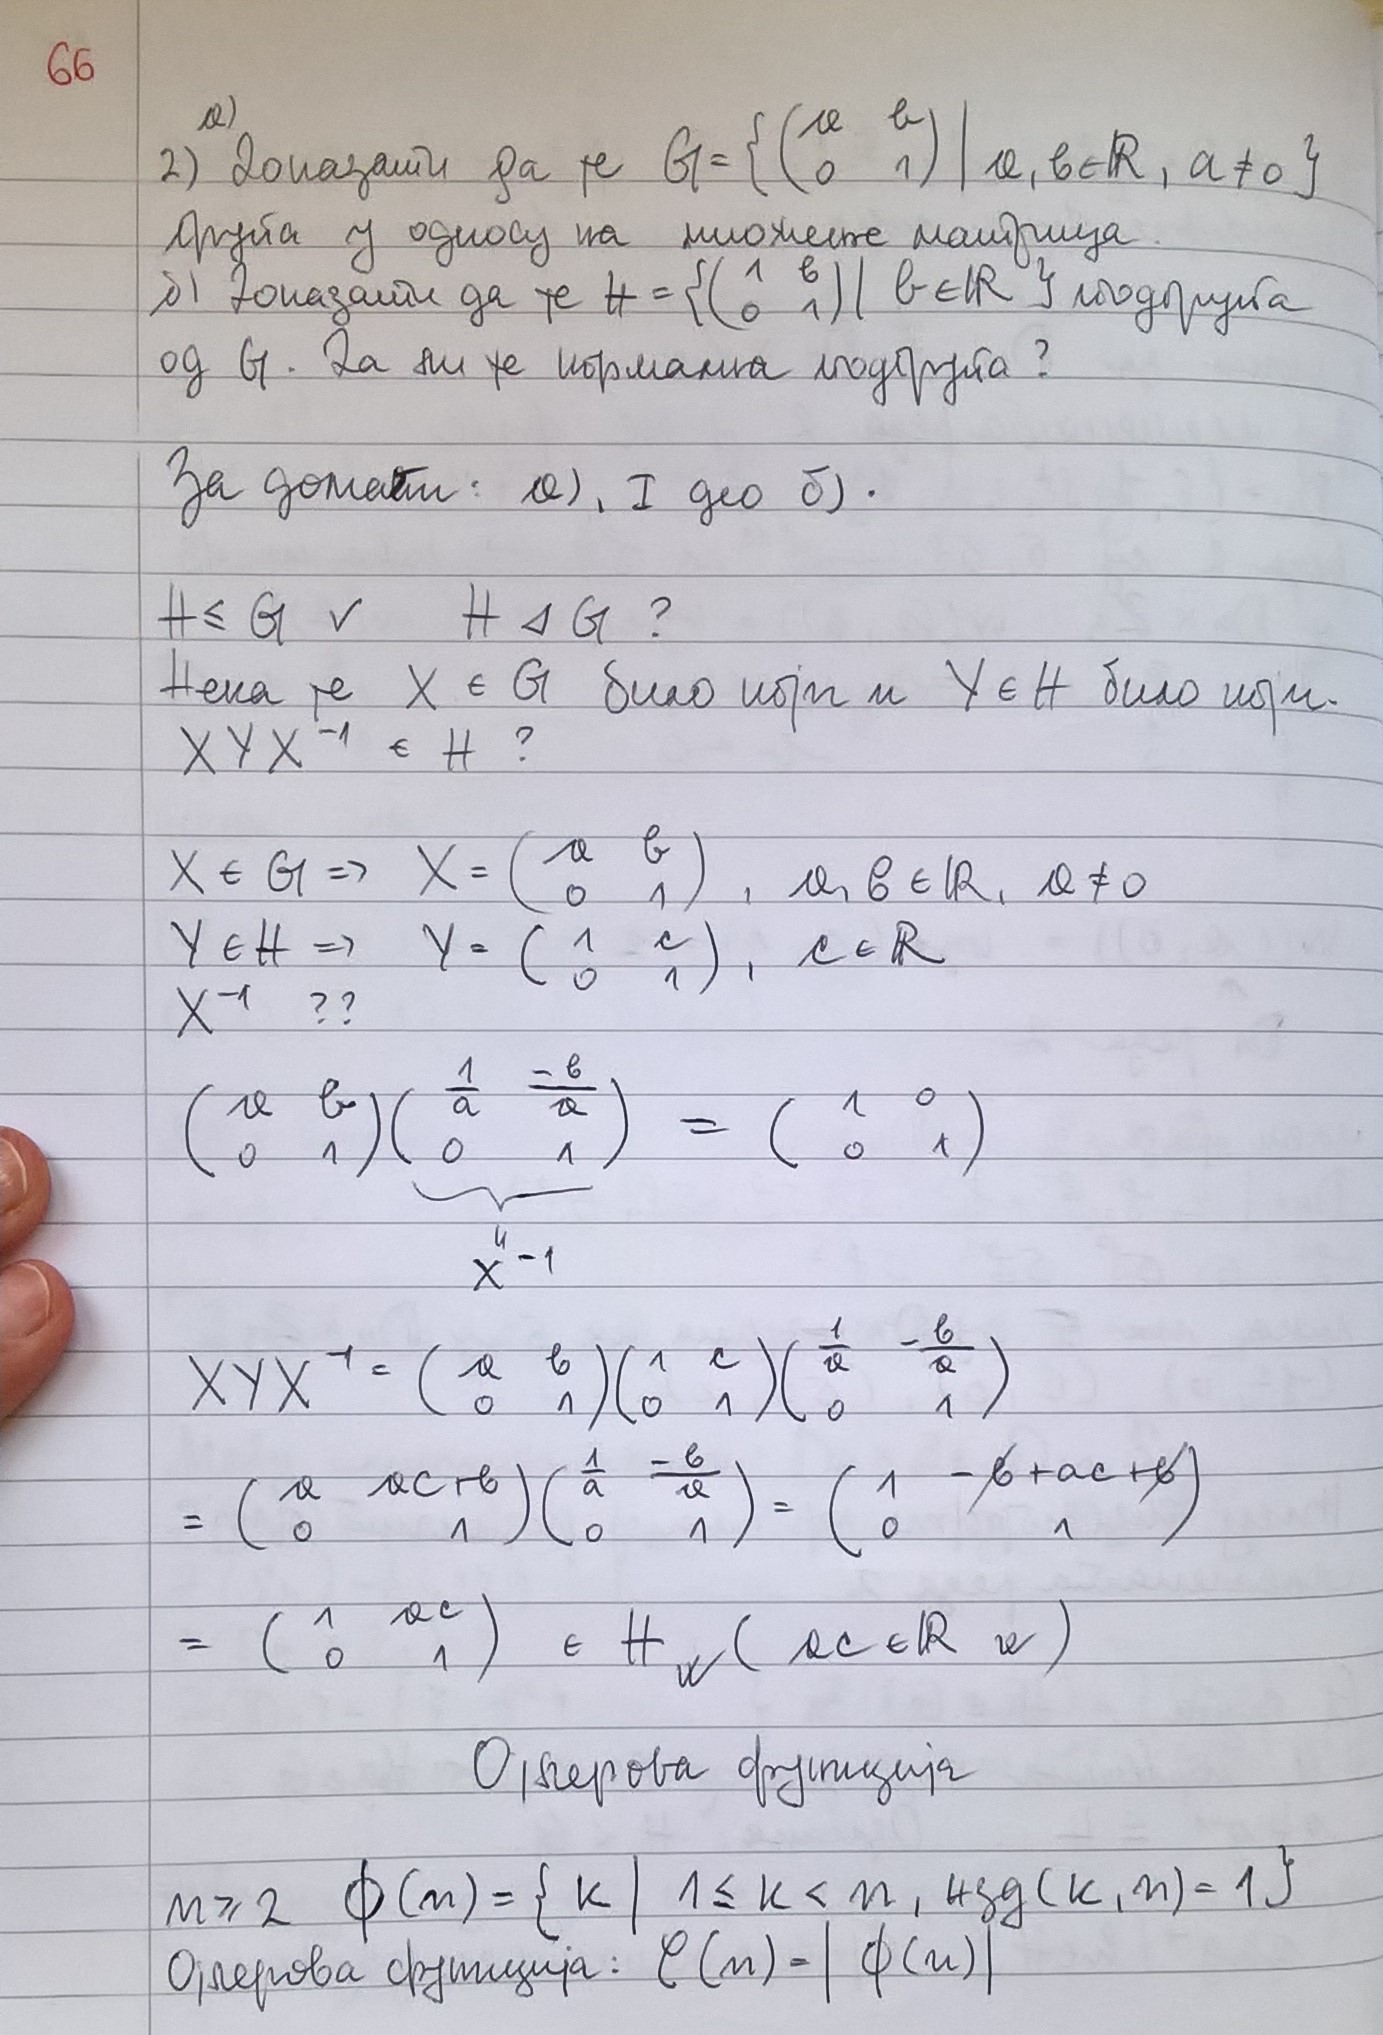 66
а)
2) Доказати да је G = {(a b; 0 1) | a, b ∈ ℝ, a ≠ 0}
група у односу на множење матрица.
б) Доказати да је H = {(1 b; 0 1) | b ∈ ℝ} подгрупа
од G. Да ли је нормална подгрупа?
За домаћи: а), I део б).
H ≤ G ✓ H ⊲ G ?
Нека је X ∈ G било који и Y ∈ H било који.
XYX⁻¹ ∈ H ?
X ∈ G => X = (a b; 0 1), a, b ∈ ℝ, a ≠ 0
Y ∈ H => Y = (1 c; 0 1), c ∈ ℝ
X⁻¹ ??
(a b; 0 1)(1/a -b/a; 0 1) = (1 0; 0 1)
"
X⁻¹
XYX⁻¹ = (a b; 0 1)(1 c; 0 1)(1/a -b/a; 0 1)
= (a ac+b; 0 1)(1/a -b/a; 0 1) = (1 -b+ac+b; 0 1)
= (1 ac; 0 1) ∈ H ✓ (ac ∈ ℝ ✓)
Ојлерова функција
n ≥ 2 ϕ(n) = {k | 1 ≤ k < n, нзд(k, n) = 1}
Ојлерова функција: φ(n) = |ϕ(n)|